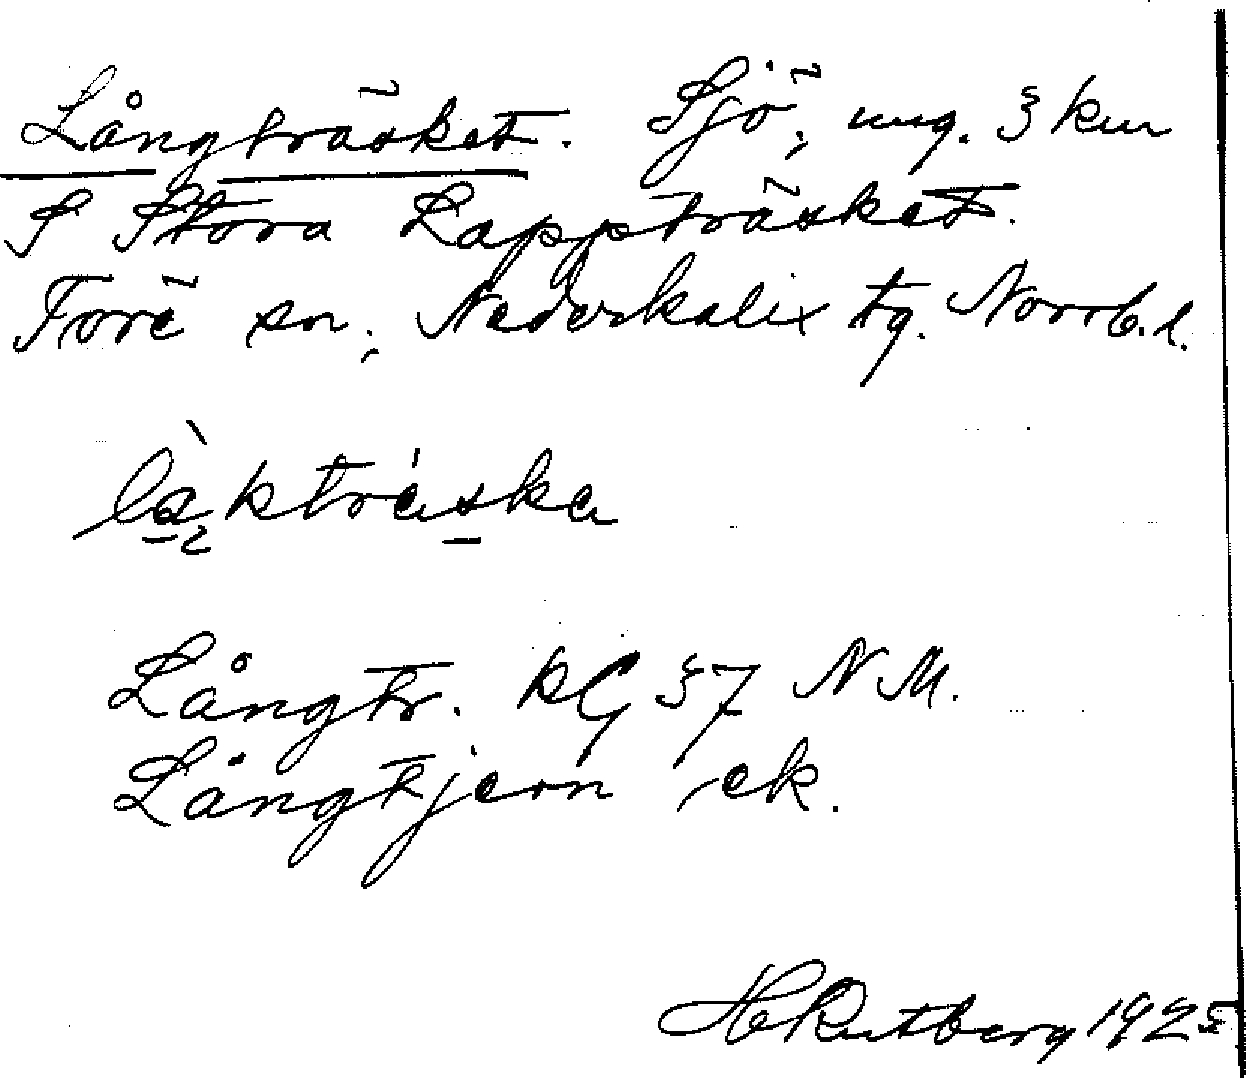 Långträsket. Sjö, ung. 3 km
S Stora Lappträsket.
Töre sn, Nederkalix tg. Norrb. l.
Långtr. kG 37 N M.
Långtjern ek.
H Rutberg 1925